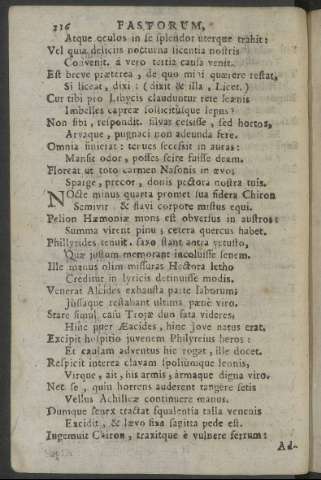 316 FASTORUM,
Atque oculos in se splendor uterque trahit:
Vel quia deliciis nocturna licentia nostris
Convenit. a vero tertia causa venit.
Est breve præterea, de quo mihi quærere restat,
Si liceat, dixi: (dixit & illa, Licet.)
Cur tibi pro Libycis clauduntur rete leænis
Imbelles capreæ sollicitusque lepus?
Non sibi, respondit, silvas cessisse, sed hortos,
Arvaque, pugnaci non adeunda feræ.
Omnia finierat: tenues secessit in auras;
Mansit odor, posses scire fuisse deam.
Floreat ut toto carmen Nasonis in ævo;
Sparge, precor, donis pectora nostra tuis.
NOcte minus quarta promet sua sidera Chiron
Semivir & flavi corpore mistus equi.
Pelion Hæmoniæ mons est obversus in austros:
Summa virent pinu; cetera quercus habet.
Phillyrides tenuit. saxo stant antra vetusto,
Quæ justum memorant incoluisse senem.
Ille manus olim missuras Hectora letho
Creditur in lyricis detinuisse modis.
Venerat Alcides exhausta parte laborum;
Jussaque restabant ultima pæne viro.
Stare simul casu Trojæ duo fata videres;
Hinc puer Æacides, hinc jove natus erat.
Excipit hospitio juvenem Philyreius heros:
Et causam adventus hic rogat, ille docet.
Respicit interea clavam spoliumque leonis,
Virque, ait, his armis, armaque digna viro.
Nec se, quin horrens auderent tangere setis
Vellus Achilleæ continuere manus.
Dumque senex tractat squalentia talla venenis
Excidit, & lævo fixa sagitta pede est.
Ingemuit Chiron, traxitque è vulnere ferrum:
Ad-